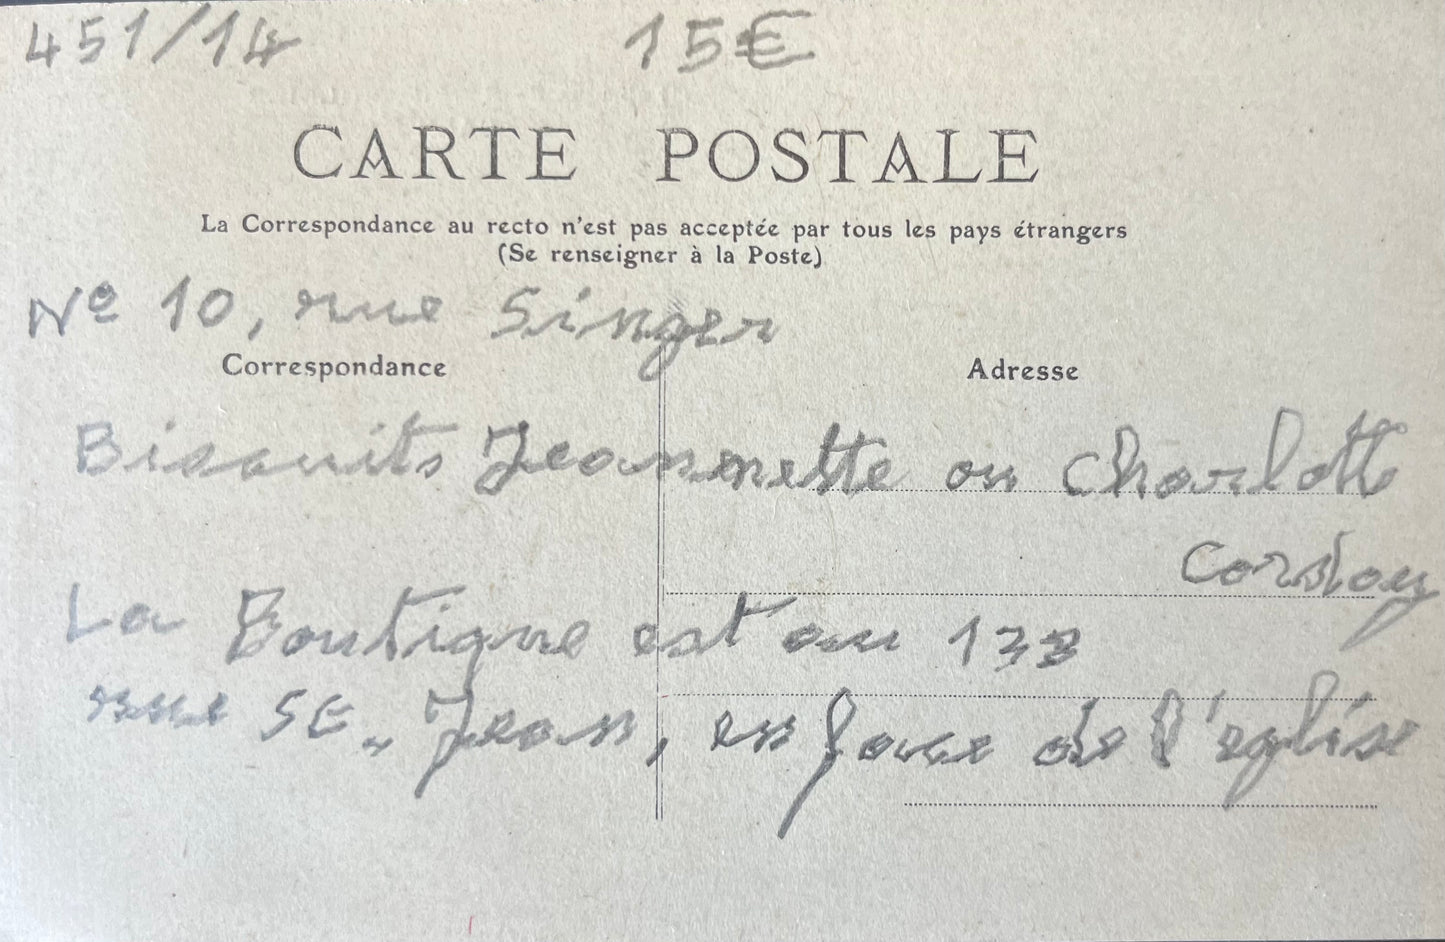 451/14 15€
CARTE POSTALE
La Correspondance au recto n'est pas acceptée par tous les pays étrangers
(Se renseigner à la Poste)
Nº 10, rue Singer
Correspondance Adresse
Biscuits Jeannette ou Charlotte
Corday
La Boutique est au 133
rue St. Jean, en face de l'église